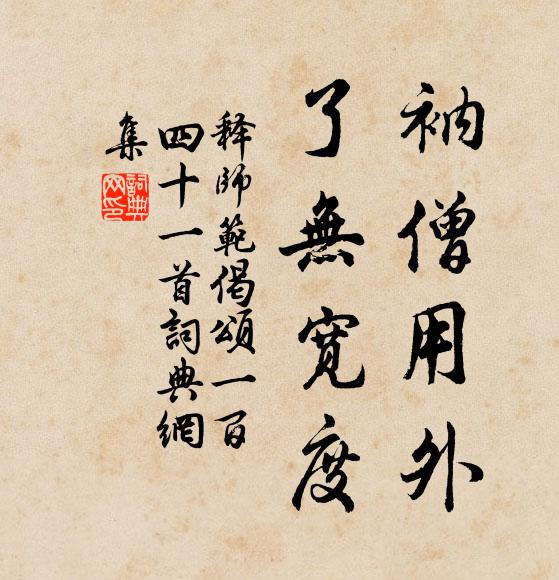 衲僧用外
了無寬度
釋師範偈頌一百
四十一首詞典網
集
詞典
网印